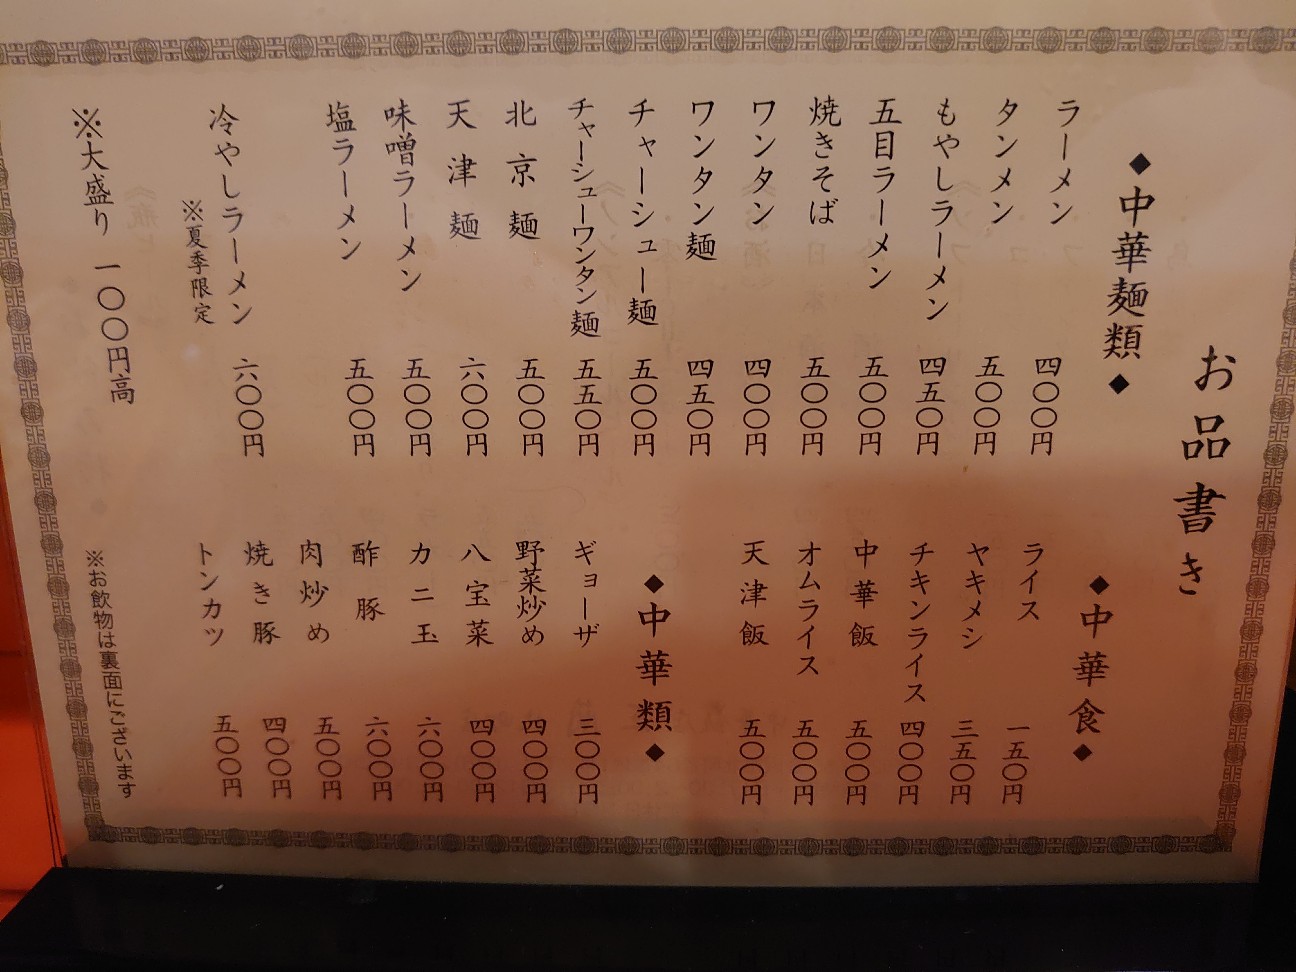 お品書き
◆中華麺類◆
ラーメン 四〇〇円
タンメン 五〇〇円
もやしラーメン 四五〇円
五目ラーメン 五〇〇円
焼きそば 五〇〇円
ワンタン 四〇〇円
ワンタン麺 四五〇円
チャーシュー麺 五〇〇円
チャーシューワンタン麺 五五〇円
北京麺 五〇〇円
天津麺 六〇〇円
味噌ラーメン 五〇〇円
塩ラーメン 五〇〇円
冷やしラーメン 六〇〇円
※夏季限定
※大盛り 一〇〇円高
◆中華食◆
ライス 一五〇円
ヤキメシ 三五〇円
チキンライス 四〇〇円
中華飯 五〇〇円
オムライス 五〇〇円
天津飯 五〇〇円
◆中華類◆
ギョーザ 三〇〇円
野菜炒め 四〇〇円
八宝菜 四〇〇円
カニ玉 六〇〇円
酢豚 六〇〇円
肉炒め 五〇〇円
焼き豚 四〇〇円
トンカツ 五〇〇円
※お飲物は裏面にございます